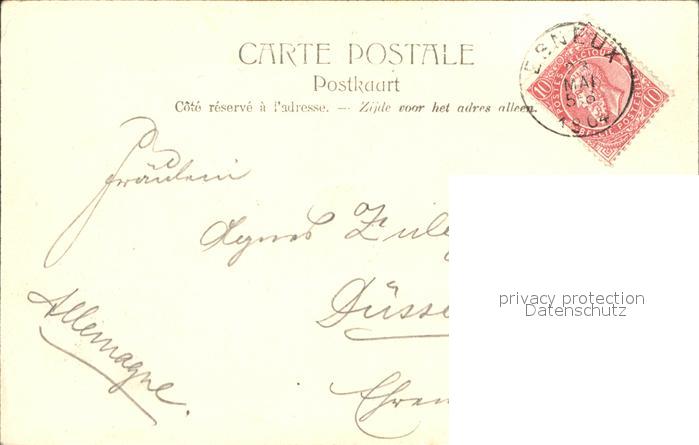 CARTE POSTALE
Postkaart
Côté réservé à l'adresse. — Zijde voor het adres alleen.
ESNEUX
MAI
1904
10 10
Fräulein
Agnes
Düsse
Allemagne.
Ehren
privacy protection
Datenschutz